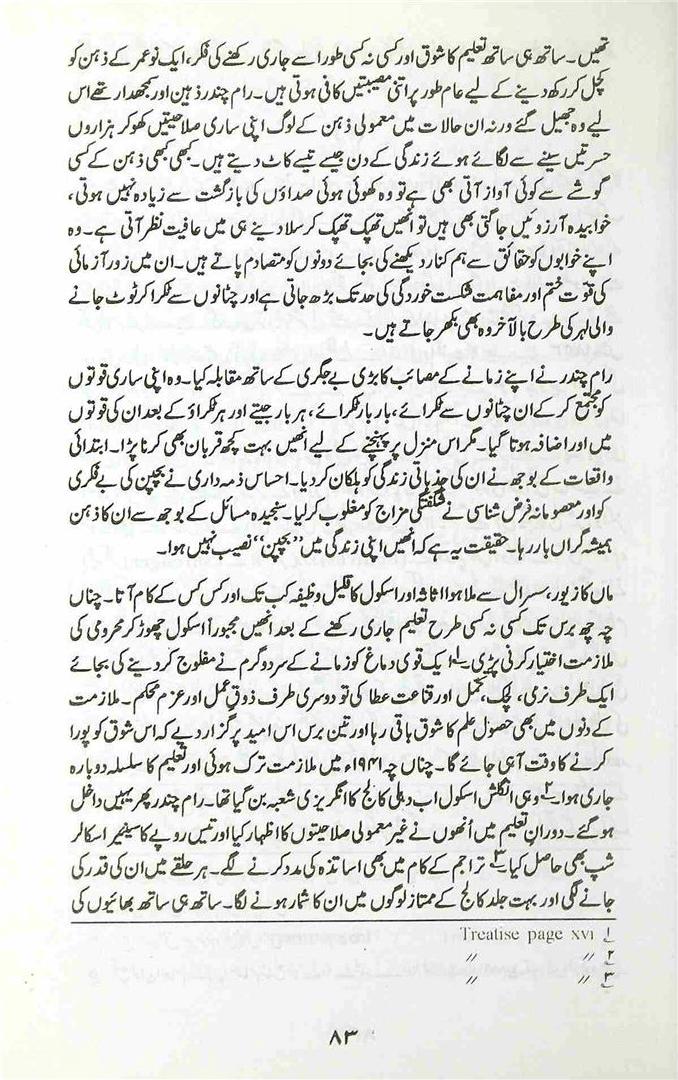 تھیں۔ ساتھ ہی ساتھ تعلیم کا شوق اور کسی نہ کسی طور اسے جاری رکھنے کی فکر، ایک نوعمر کے ذہن کو
کچل کر رکھ دینے کے لیے عام طور پر اتنی مصیبتیں کافی ہوتی ہیں۔ رام چندر ذہین اور سمجھدار تھے اس
لیے وہ جھیل گئے ورنہ ان حالات میں معمولی ذہن کے لوگ اپنی ساری صلاحیتیں کھو کر ہزاروں
حسرتیں سینے سے لگائے ہوئے زندگی کے دن جیسے تیسے کاٹ دیتے ہیں۔ کبھی کبھی ذہن کے کسی
گوشے سے کوئی آواز آتی بھی ہے تو وہ کھوئی ہوئی صداؤں کی بازگشت سے زیادہ نہیں ہوتی،
خوابیدہ آرزوئیں جاگتی بھی ہیں تو انھیں تھپک تھپک کر سلا دینے ہی میں عافیت نظر آتی ہے۔ وہ
اپنے خوابوں کو حقائق سے ہم کنار دیکھنے کی بجائے دونوں کو متصادم پاتے ہیں۔ ان میں زور آزمائی
کی قوت ختم اور مفاہمت شکست خوردگی کی حد تک بڑھ جاتی ہے اور چٹانوں سے ٹکرا کر ٹوٹ جانے
والی لہر کی طرح بالآخر وہ بھی بکھر جاتے ہیں۔
رام چندر نے اپنے زمانے کے مصائب کا بڑی بے جگری کے ساتھ مقابلہ کیا۔ وہ اپنی ساری قوتوں
کو مجتمع کر کے ان چٹانوں سے ٹکرائے، بار بار ٹکرائے، ہر بار جیتے اور ہر ٹکراؤ کے بعد ان کی قوتوں
میں اور اضافہ ہوتا گیا۔ مگر اس منزل پر پہنچنے کے لیے انھیں بہت کچھ قربان بھی کرنا پڑا۔ ابتدائی
واقعات کے بوجھ نے ان کی جذباتی زندگی کو ہلکان کر دیا۔ احساس ذمہ داری نے بچپن کی بے فکری
کو اور معصومانہ فرض شناسی نے شگفتگی مزاج کو مغلوب کر لیا۔ سنجیدہ مسائل کے بوجھ سے ان کا ذہن
ہمیشہ گراں بار رہا۔ حقیقت یہ ہے کہ انھیں اپنی زندگی میں ”بچپن“ نصیب نہیں ہوا۔
ماں کا زیور، سسرال سے ملا ہوا اثاثہ اور اسکول کا قلیل وظیفہ کب تک اور کس کس کے کام آتا۔ چناں
چہ چھ برس تک کسی نہ کسی طرح تعلیم جاری رکھنے کے بعد انھیں مجبوراً اسکول چھوڑ کر محرومی کی
ملازمت اختیار کرنی پڑی۱؎ ایک قوی دماغ کو زمانے کے سرد و گرم نے مفلوج کر دینے کی بجائے
ایک طرف نرمی، لچک، تحمل اور قناعت عطا کی تو دوسری طرف ذوق عمل اور عزم محکم۔ ملازمت
کے دنوں میں بھی حصول علم کا شوق باقی رہا اور تین برس اس امید پر گزار دیے کہ اس شوق کو پورا
کرنے کا وقت آ ہی جائے گا۔ چناں چہ ۱۹۴۱ء میں ملازمت ترک ہوئی اور تعلیم کا سلسلہ دوبارہ
جاری ہوا۲؎ وہی انگلش اسکول اب دہلی کالج کا انگریزی شعبہ بن گیا تھا۔ رام چندر پھر یہیں داخل
ہو گئے۔ دوران تعلیم میں اُنھوں نے غیر معمولی صلاحیتوں کا اظہار کیا اور تیس روپے کا سینیر اسکالر
شپ بھی حاصل کیا۳؎ تراجم کے کام میں بھی اساتذہ کی مدد کرنے لگے۔ ہر حلقے میں ان کی قدر کی
جانے لگی اور بہت جلد کالج کے ممتاز لوگوں میں ان کا شمار ہونے لگا۔ ساتھ ہی ساتھ بھائیوں کی
۱؎ Treatise page xvi
۲؎ 〃 〃
۳؎ 〃 〃
۸۳